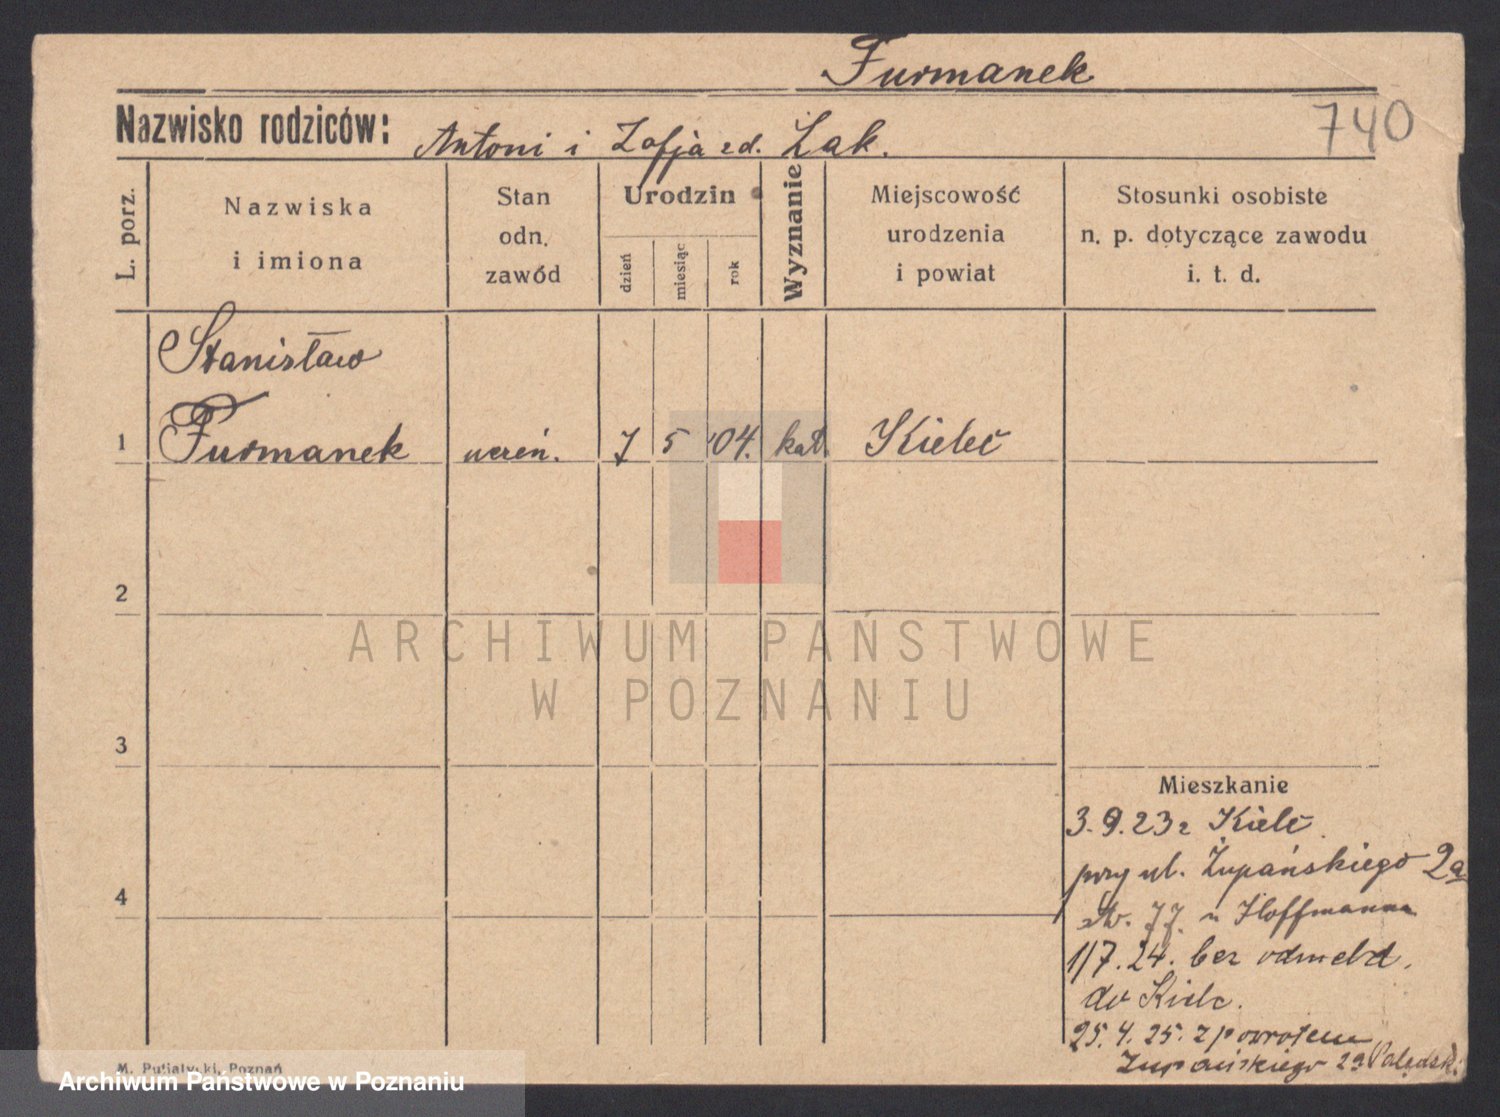 Furmanek
740
Nazwisko rodziców: Antoni i Zofja zd. Żak.
L. porz.
Nazwiska
i imiona
Stan
odn.
zawód
Urodzin
dzień
miesiąc
rok
Wyznanie
Miejscowość
urodzenia
i powiat
Stosunki osobiste
n. p. dotyczące zawodu
i. t. d.
Stanisław
1 Furmanek uczeń. 7 5 '04. kat. Kielc
2
ARCHIWUM PAŃSTWOWE
W POZNANIU
3
4
Mieszkanie
3.9.23 z Kielc
przy ul. Żupańskiego 2a
77 u Hoffmanna
1/7.24. bez odmeld.
do Kielc.
25.4.25. z powrotem
Żupańskiego 2a
M. Putiatycki, Poznań
Archiwum Państwowe w Poznaniu